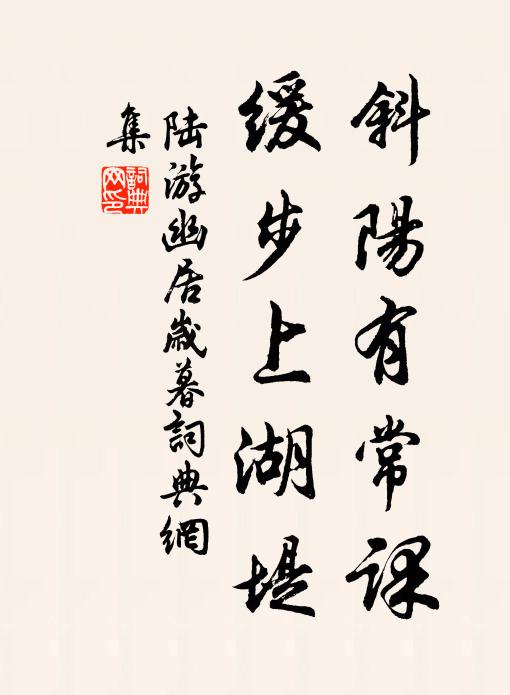 斜陽有常課
緩步上湖堤
陆游幽居歲暮詞典網
集
詞典网印